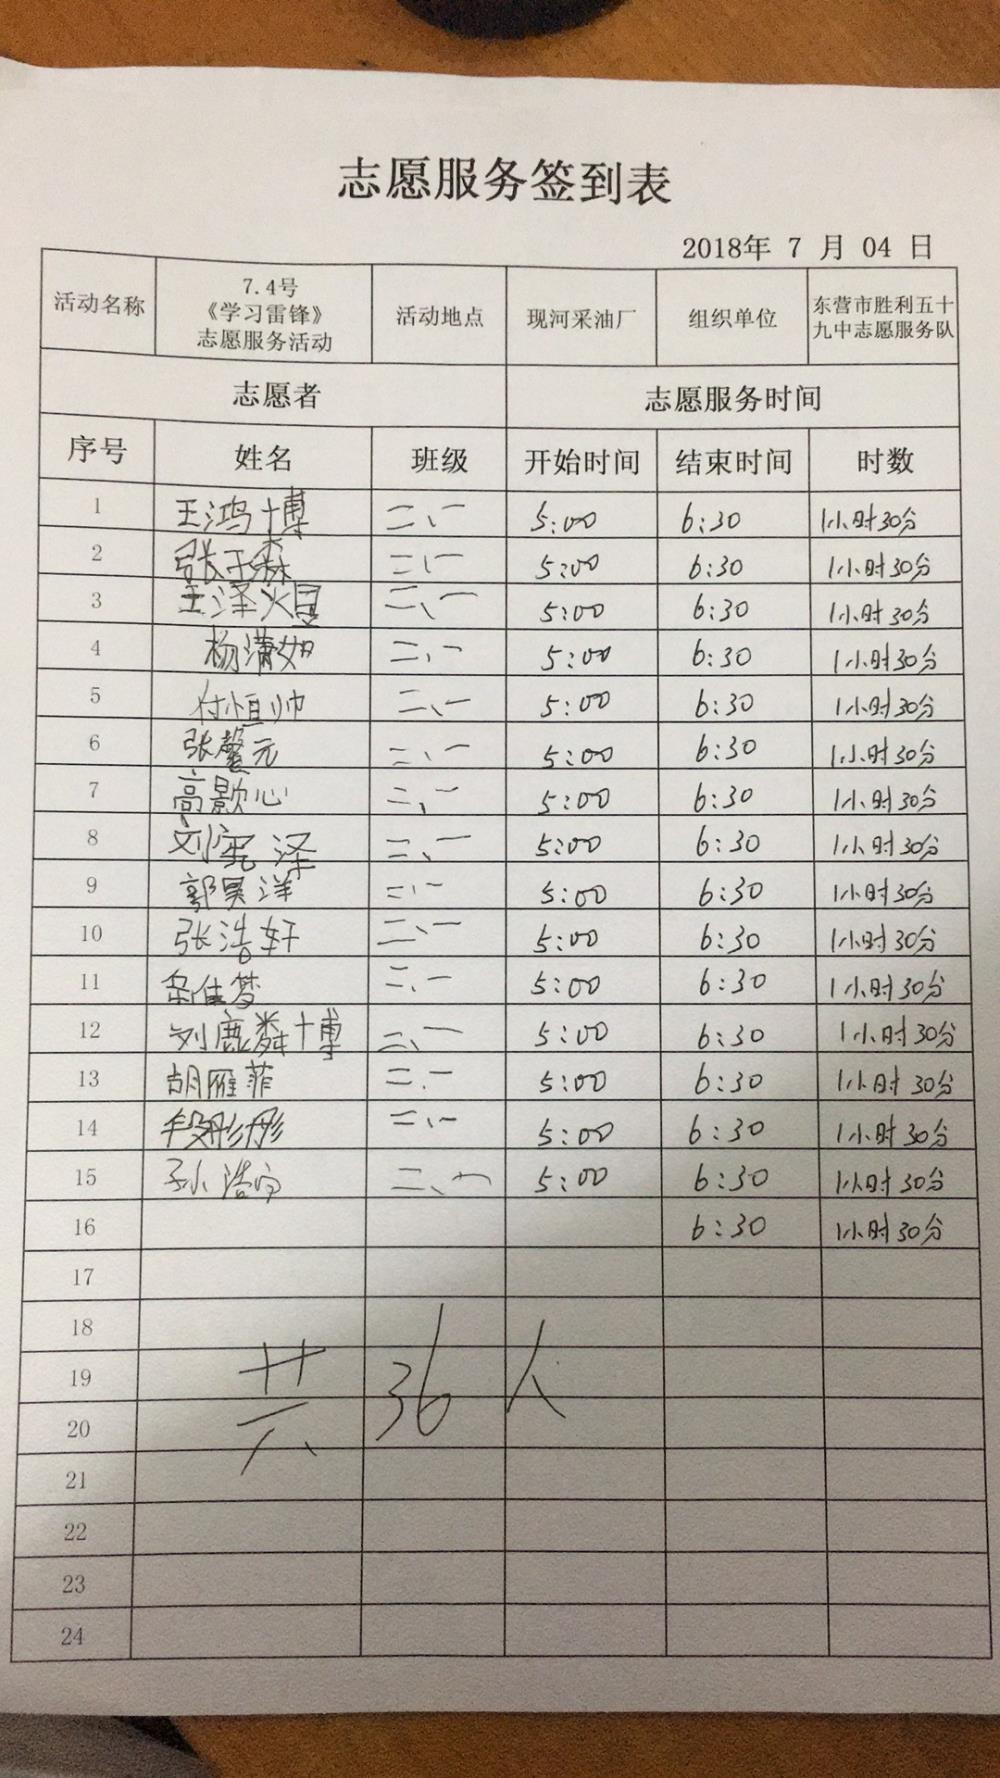 志愿服务签到表
2018年 7 月 04 日
活动名称 7.4号《学习雷锋》志愿服务活动 活动地点 现河采油厂 组织单位 东营市胜利五十九中志愿服务队
志愿者 志愿服务时间
序号 姓名 班级 开始时间 结束时间 时数
1 王鸿博 二、一 5:00 6:30 1小时30分
2 张于森 二、一 5:00 6:30 1小时30分
3 王泽焜 二、一 5:00 6:30 1小时30分
4 杨潇如 二、一 5:00 6:30 1小时30分
5 付恒帅 二、一 5:00 6:30 1小时30分
6 张馨元 二、一 5:00 6:30 1小时30分
7 高歆心 二、一 5:00 6:30 1小时30分
8 刘宪泽 二、一 5:00 6:30 1小时30分
9 郭昊洋 二、一 5:00 6:30 1小时30分
10 张浩轩 二、一 5:00 6:30 1小时30分
11 岳佳梦 二、一 5:00 6:30 1小时30分
12 刘鹿粦博 二、一 5:00 6:30 1小时30分
13 胡雁菲 二、一 5:00 6:30 1小时30分
14 段彤彤 二、一 5:00 6:30 1小时30分
15 孙浩 二、一 5:00 6:30 1小时30分
16 6:30 1小时30分
17
18
19 共36人
20
21
22
23
24